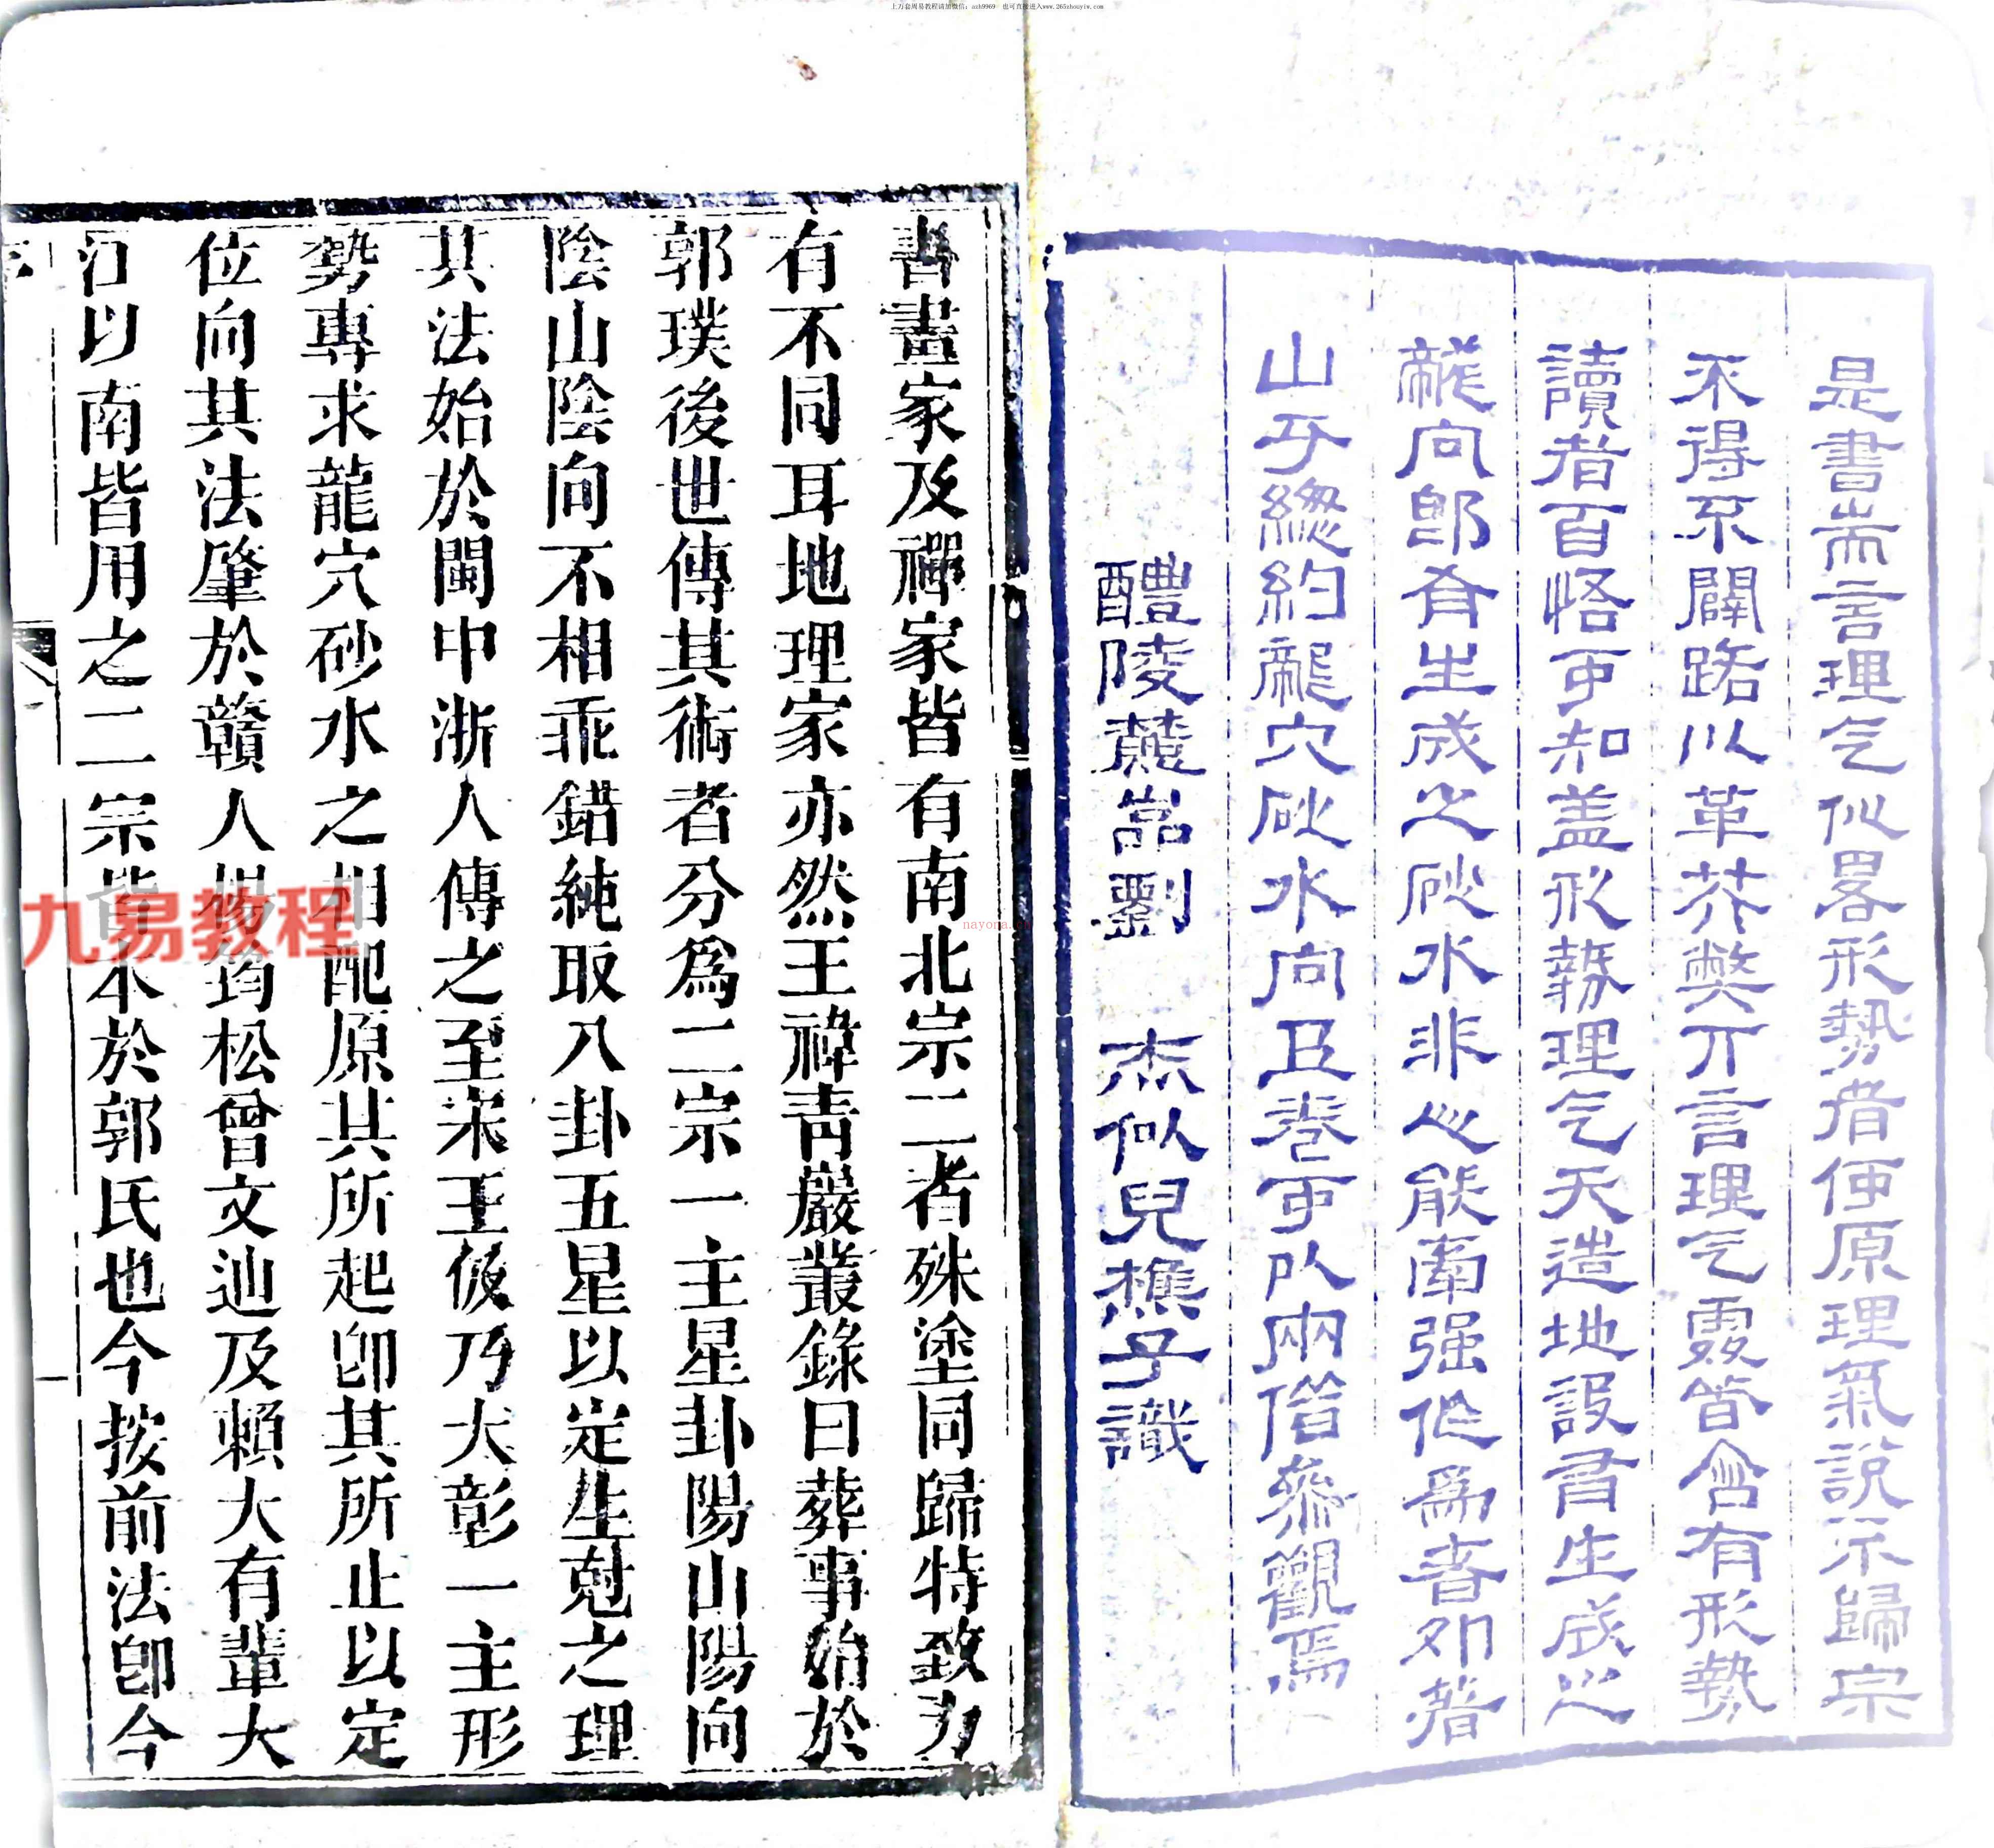 上万套周易教程请加微信：azh9969 也可直接进入www.265zhouyiw.com
是書耑言理气似畧形勢者便原理氣說不歸宗
不得不闢路以革茅獘丌言理气處皆含有形勢
讀者自悟可知盖形勢理气天造地設有生成之
龍向即有生成之砂水非心能圉强作為者如著
山于總約龍穴砂水向五卷可以兩偕叅觀焉
醴陵 嵓劉 杰似兒樵子識
書畫家及禪家皆有南北宗二者殊塗同歸特致力
有不同耳地理家亦然王禕青巖叢錄曰葬事始於
郭璞後世傳其術者分為二宗一主星卦陽山陽向
陰山陰向不相乖錯純取八卦五星以定生尅之理
其法始於閩中浙人傳之至宋王伋乃大彰一主形
勢專求龍穴砂水之相配原其所起卽其所止以定
位向其法肇於贛人楊筠松曾文辿及賴大有輩大
江以南皆用之二宗皆本於郭氏也今按前法卽今
九易教程